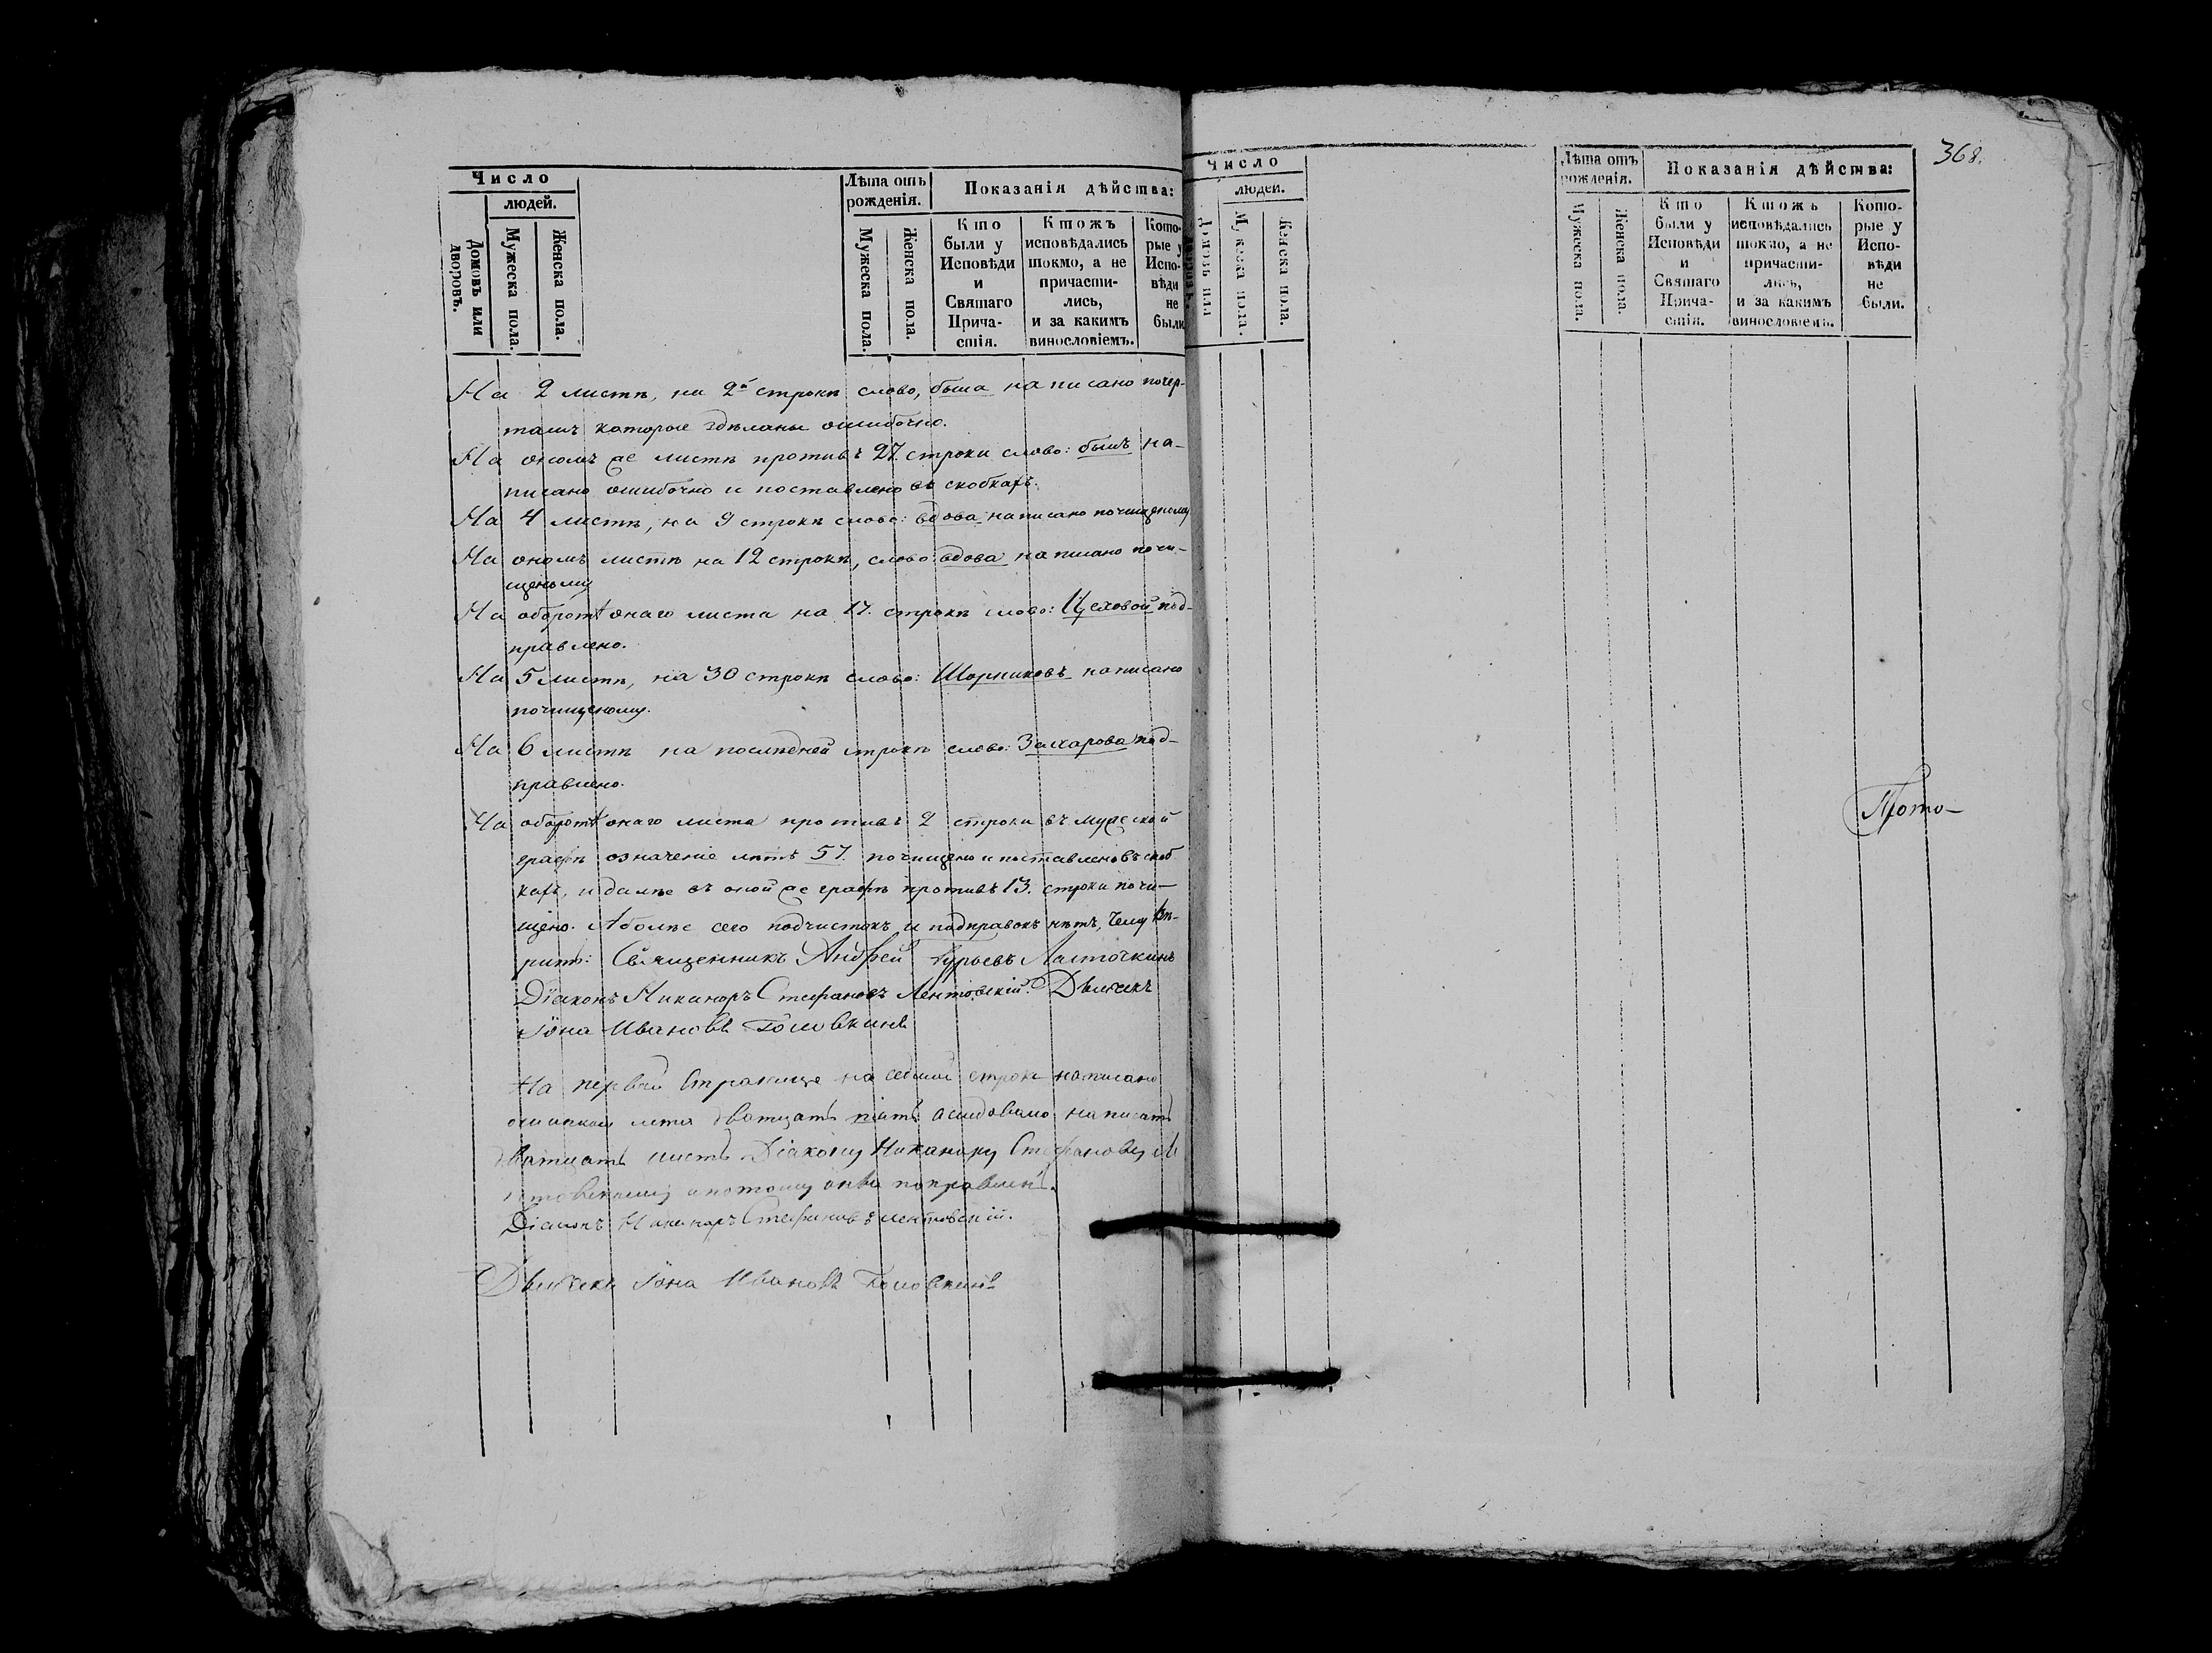 Число
людей.
Домовъ или дворовъ.
Мужеска пола.
Женска пола.
Лѣта отъ рожденія.
Мужеска пола.
Женска пола.
Показанія дѣйства:
Кто были у Исповѣди и Святаго Причастія.
Ктожъ исповѣдались токмо, а не причастились, и за какимъ винословіемъ.
Которые у Исповѣди не были
На 2 листѣ, на 2й строкѣ слово, быша написано почер-
тамъ которые здѣланы ошибочно.
На ономъ же листѣ противъ 27. строки слово: былъ на-
писано ошибочно и поставлено въ скобкахъ.
На 4 листѣ, на 9 строкѣ слово: вдова написано почищеному
На ономъ листѣ на 12 строкѣ, слово: вдова написано почи-
щеному
На оборотѣ онаго листа на 17. строкѣ слово: Цеховой под-
правлено.
На 5 листѣ, на 30 строкѣ слово: Шорниковъ написано
почищеному.
На 6 листѣ на последней строкѣ слово: Захарова под-
правлено.
На оборотѣ онаго листа противъ 2 строки въ мужеской
графѣ означеніе лѣтъ 57. почищено и поставлено въ скоб
кахъ, и далѣе въ оной же графѣ противъ 13. строки почи-
щено. А болѣе сего подчистокъ и подправокъ нѣтъ, Чему вѣ-
ритъ: Священникъ Андрей Гурьевъ Ласточкинъ
Діаконъ Никаноръ Стефановъ Лентовскій. Дьячекъ
Іона Ивановъ Головкинъ
На первой Странице на седмой строке написано
лета дватцать пять а следовало написать
дватцать шесть Діакону Никанору Стефанову Ле
нтовскому а потому оные поправлены.
Діаконъ Никаноръ Стефановъ Лентовскій.
Дьячекъ Іона Ивановъ Головкинъ
Число
людей.
Домовъ или дворовъ.
Мужеска пола.
Женска пола.
Лѣта отъ рожденія.
Мужеска пола.
Женска пола.
Показанія дѣйства:
Кто были у Исповѣди и Святаго Причастія.
Ктожъ исповѣдались токмо, а не причастились, и за какимъ винословіемъ.
Которые у Исповѣди не были.
368.
Прото-